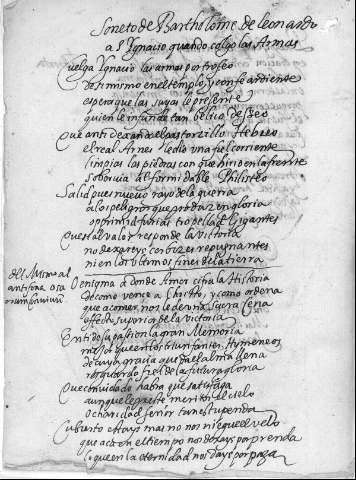 Soneto de Bartholome de leonardo
a S. Ignacio quando colgo las Armas
Cuelga Ignacio las armas por trofeo
de si mismo en el templo, y con fe ardiente
espera que las suyas le presente
quien le infunde tan belico deseo
Que antidexando el pastorzillo Hebreo
el real Arnes le dio una fiel corriente
limpias las piedras con que hirio en la frente
soberuia al formidable Philisteo
Salid pues nueuo rayo de la guerra
a los peligros que produze en gloria
oprimid furias tropellad Gigantes
Que si al valor responde la victoria
no dexareys cerbizes repugnantes
ni en los vltimos fines de la tierra
del Mismo al
antifona o sa
crum conviuium
O enigma a donde Amor cifra la Historia
de como vence a Christo, y como ordena
que a comer nos le den una Sacra Cena
offerta superior de la victoria
En ti de su passion la gran Memoria
mejor que en los triunfantes Hymeneos
de cuya gracia queda el alma llena
resguardo fiel de la futura gloria
Que conuidado habra que satisfaga
aunque le preste meritos el cielo
o charidad señor tan estupenda
Cubierto estays mas no nos niegue el velo
que aca en el tiempo nos days por prenda
lo que en la eternidad nos days por paga